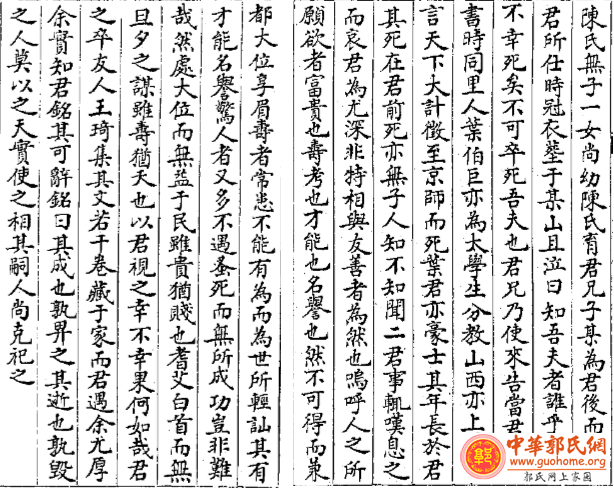 陳氏無子一女尚幼陳氏育君兄子某為君後而
君所仕時冠衣塟于某山且泣曰知吾夫者誰乎
不幸死矣不可卒死吾夫也君兄乃使來告當君
書時同里人葉伯巨亦為太學生分教山西亦上
言天下大計徵至京師而死葉君亦豪士其年長於君
其死在君前死亦無子人知不知聞二君事輒嘆息之
而哀君為尤深非特相與友善者為然也嗚呼人之所
願欲者富貴也壽考也才能也名譽也然不可得而兼
都大位享眉壽者常患不能有為而為世所輕訕其有
才能名譽驚人者又多不遇蚤死而無所成功豈非難
哉然處大位而無益于民雖貴猶賤也耆艾白首而無
旦夕之謀雖壽猶夭也以君視之幸不幸果何如哉君
之卒友人王琦集其文若干卷藏于家而君遇余尤厚
余實知君銘其可辭銘曰其成也孰畀之其逝也孰毀
之人莫以之天實使之相其嗣人尚克祀之
中華郭氏網
www.guohome.org
郭氏网上家園